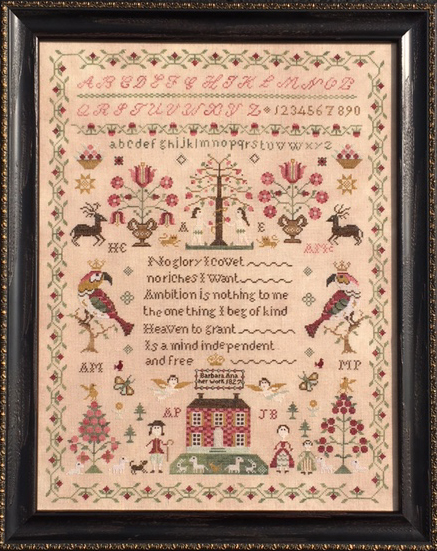 A B C D E F G H I K L M N O P
Q R S T U V W X Y Z 1 2 3 4 5 6 7 8 9 0
a b c d e f g h i j k l m n o p q r s t u v w x y z
A E
HC
No glory I covet
no riches I want
Ambition is nothing to me
the one thing I beg of kind
Heaven to grant
Is a mind independent
and free
AM MP
Barbara Ana
her work 182
AP JB